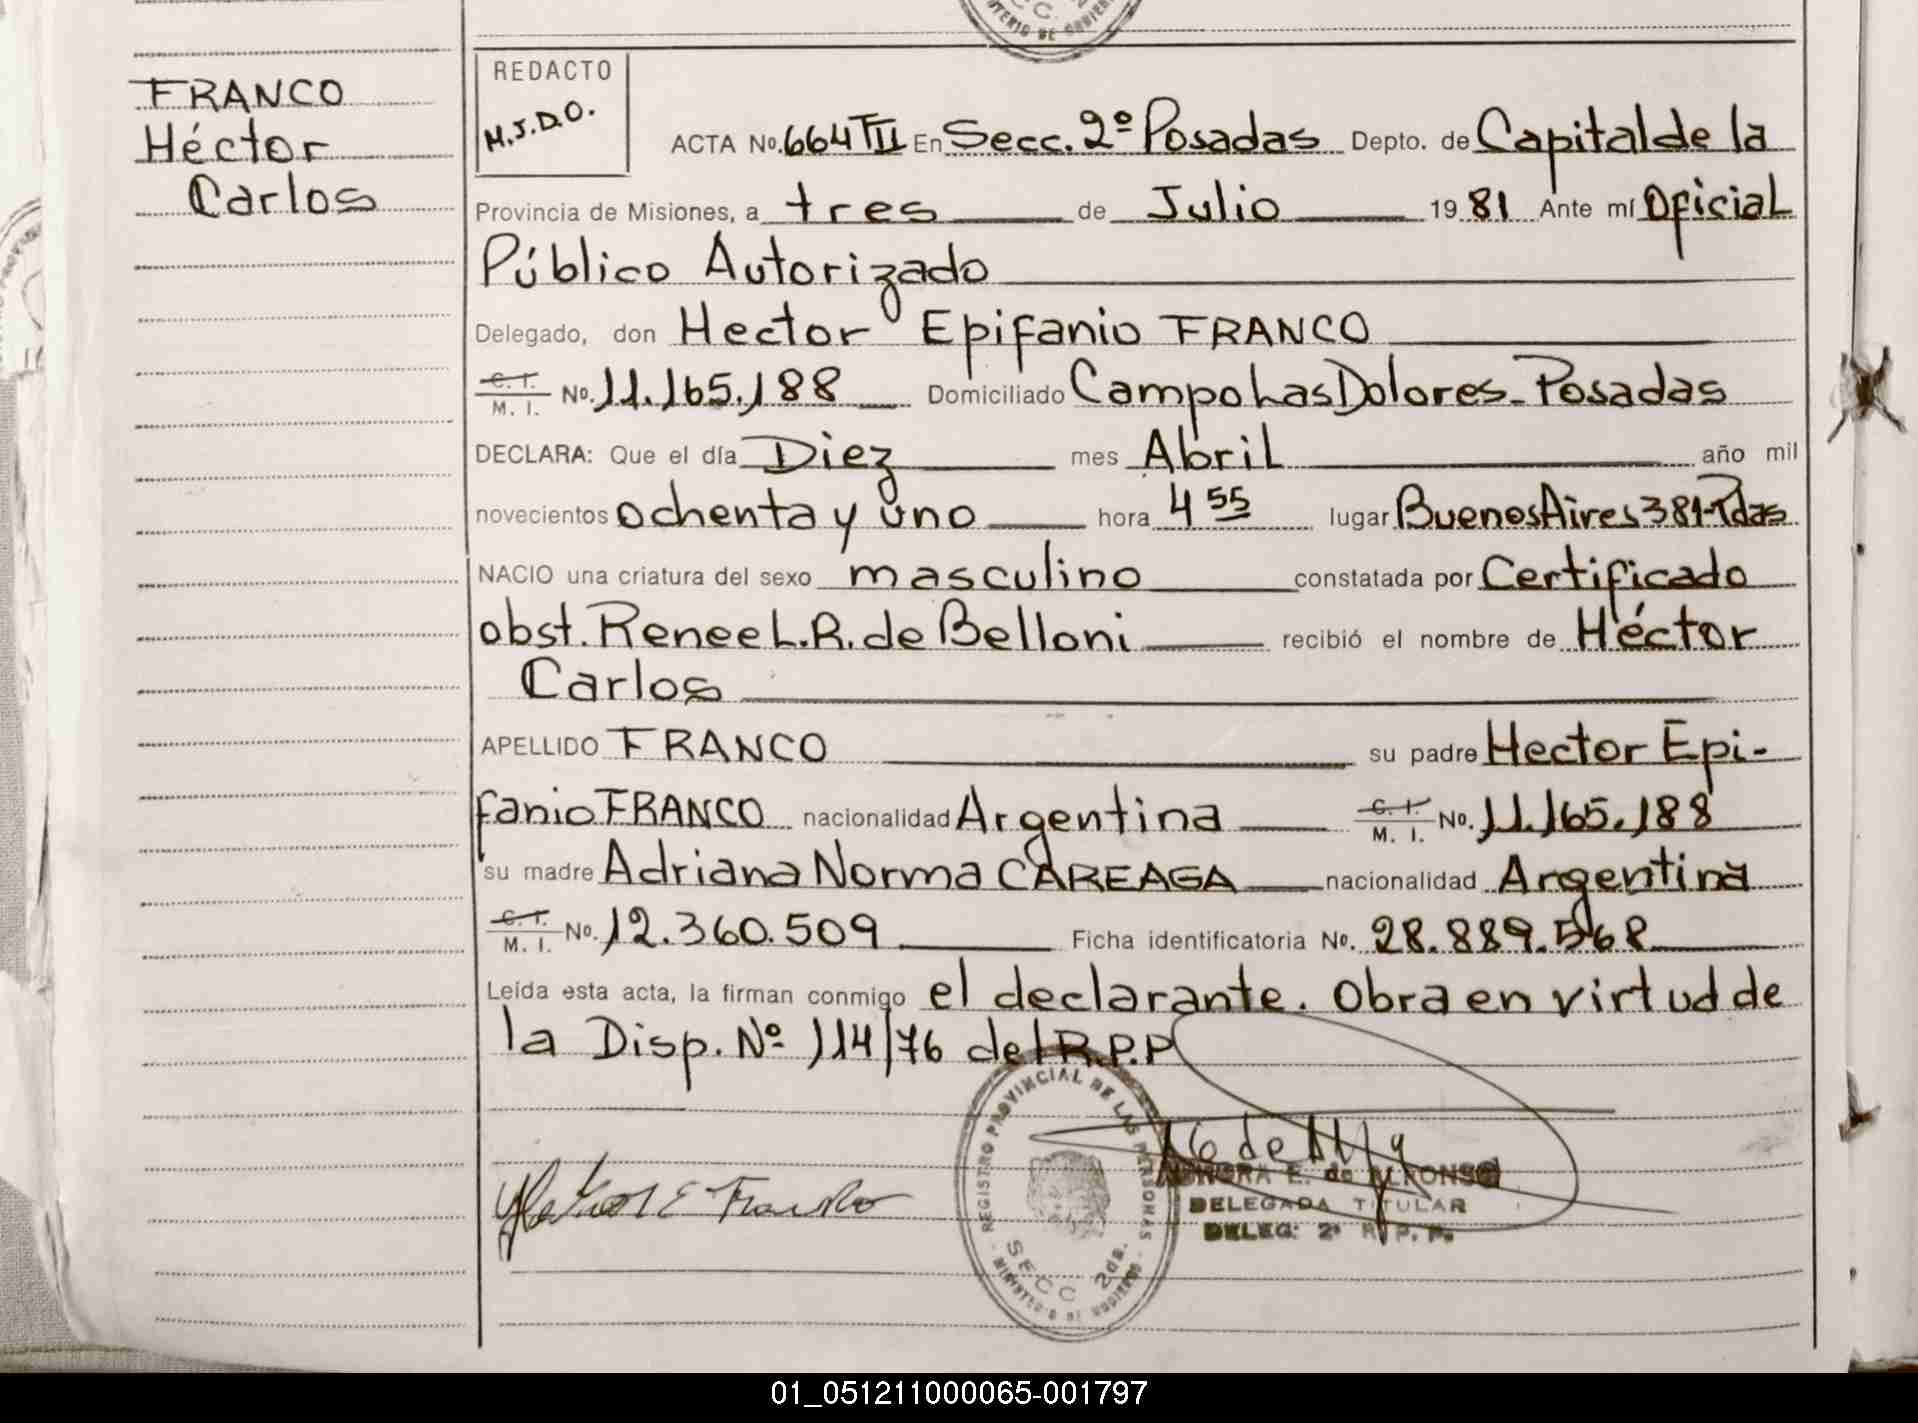 FRANCO
Héctor
Carlos
REDACTO
M.J.D.O.
ACTA No. 664 TII En Secc. 2º Posadas Depto. de Capital de la
Provincia de Misiones, a tres de Julio 19 81 Ante mí Oficial
Público Autorizado
Delegado, don Hector Epifanio FRANCO
C. I. M. I. No. 11.165.188 Domiciliado Campo Las Dolores - Posadas
DECLARA: Que el día Diez mes Abril año mil
novecientos ochenta y uno hora 4 55 lugar Buenos Aires 381-Pdas
NACIO una criatura del sexo masculino constatada por Certificado
obst. Renee L.R. de Belloni recibió el nombre de Héctor
Carlos
APELLIDO FRANCO su padre Hector Epi-
fanio FRANCO nacionalidad Argentina C. I. M. I. No. 11.165.188
su madre Adriana Norma CAREAGA nacionalidad Argentina
C. I. M. I. No. 12.360.509 Ficha identificatoria No. 28.889.568
Leída esta acta, la firman conmigo el declarante. Obra en virtud de
la Disp. Nº 114/76 del R.P.P
REGISTRO PROVINCIAL DE LAS PERSONAS
SECC 2da.
MINISTERIO DE GOBIERNO
E. de ALFONSO
DELEGADA TITULAR
DELEG: 2ª R. P. P.
01_051211000065-001797